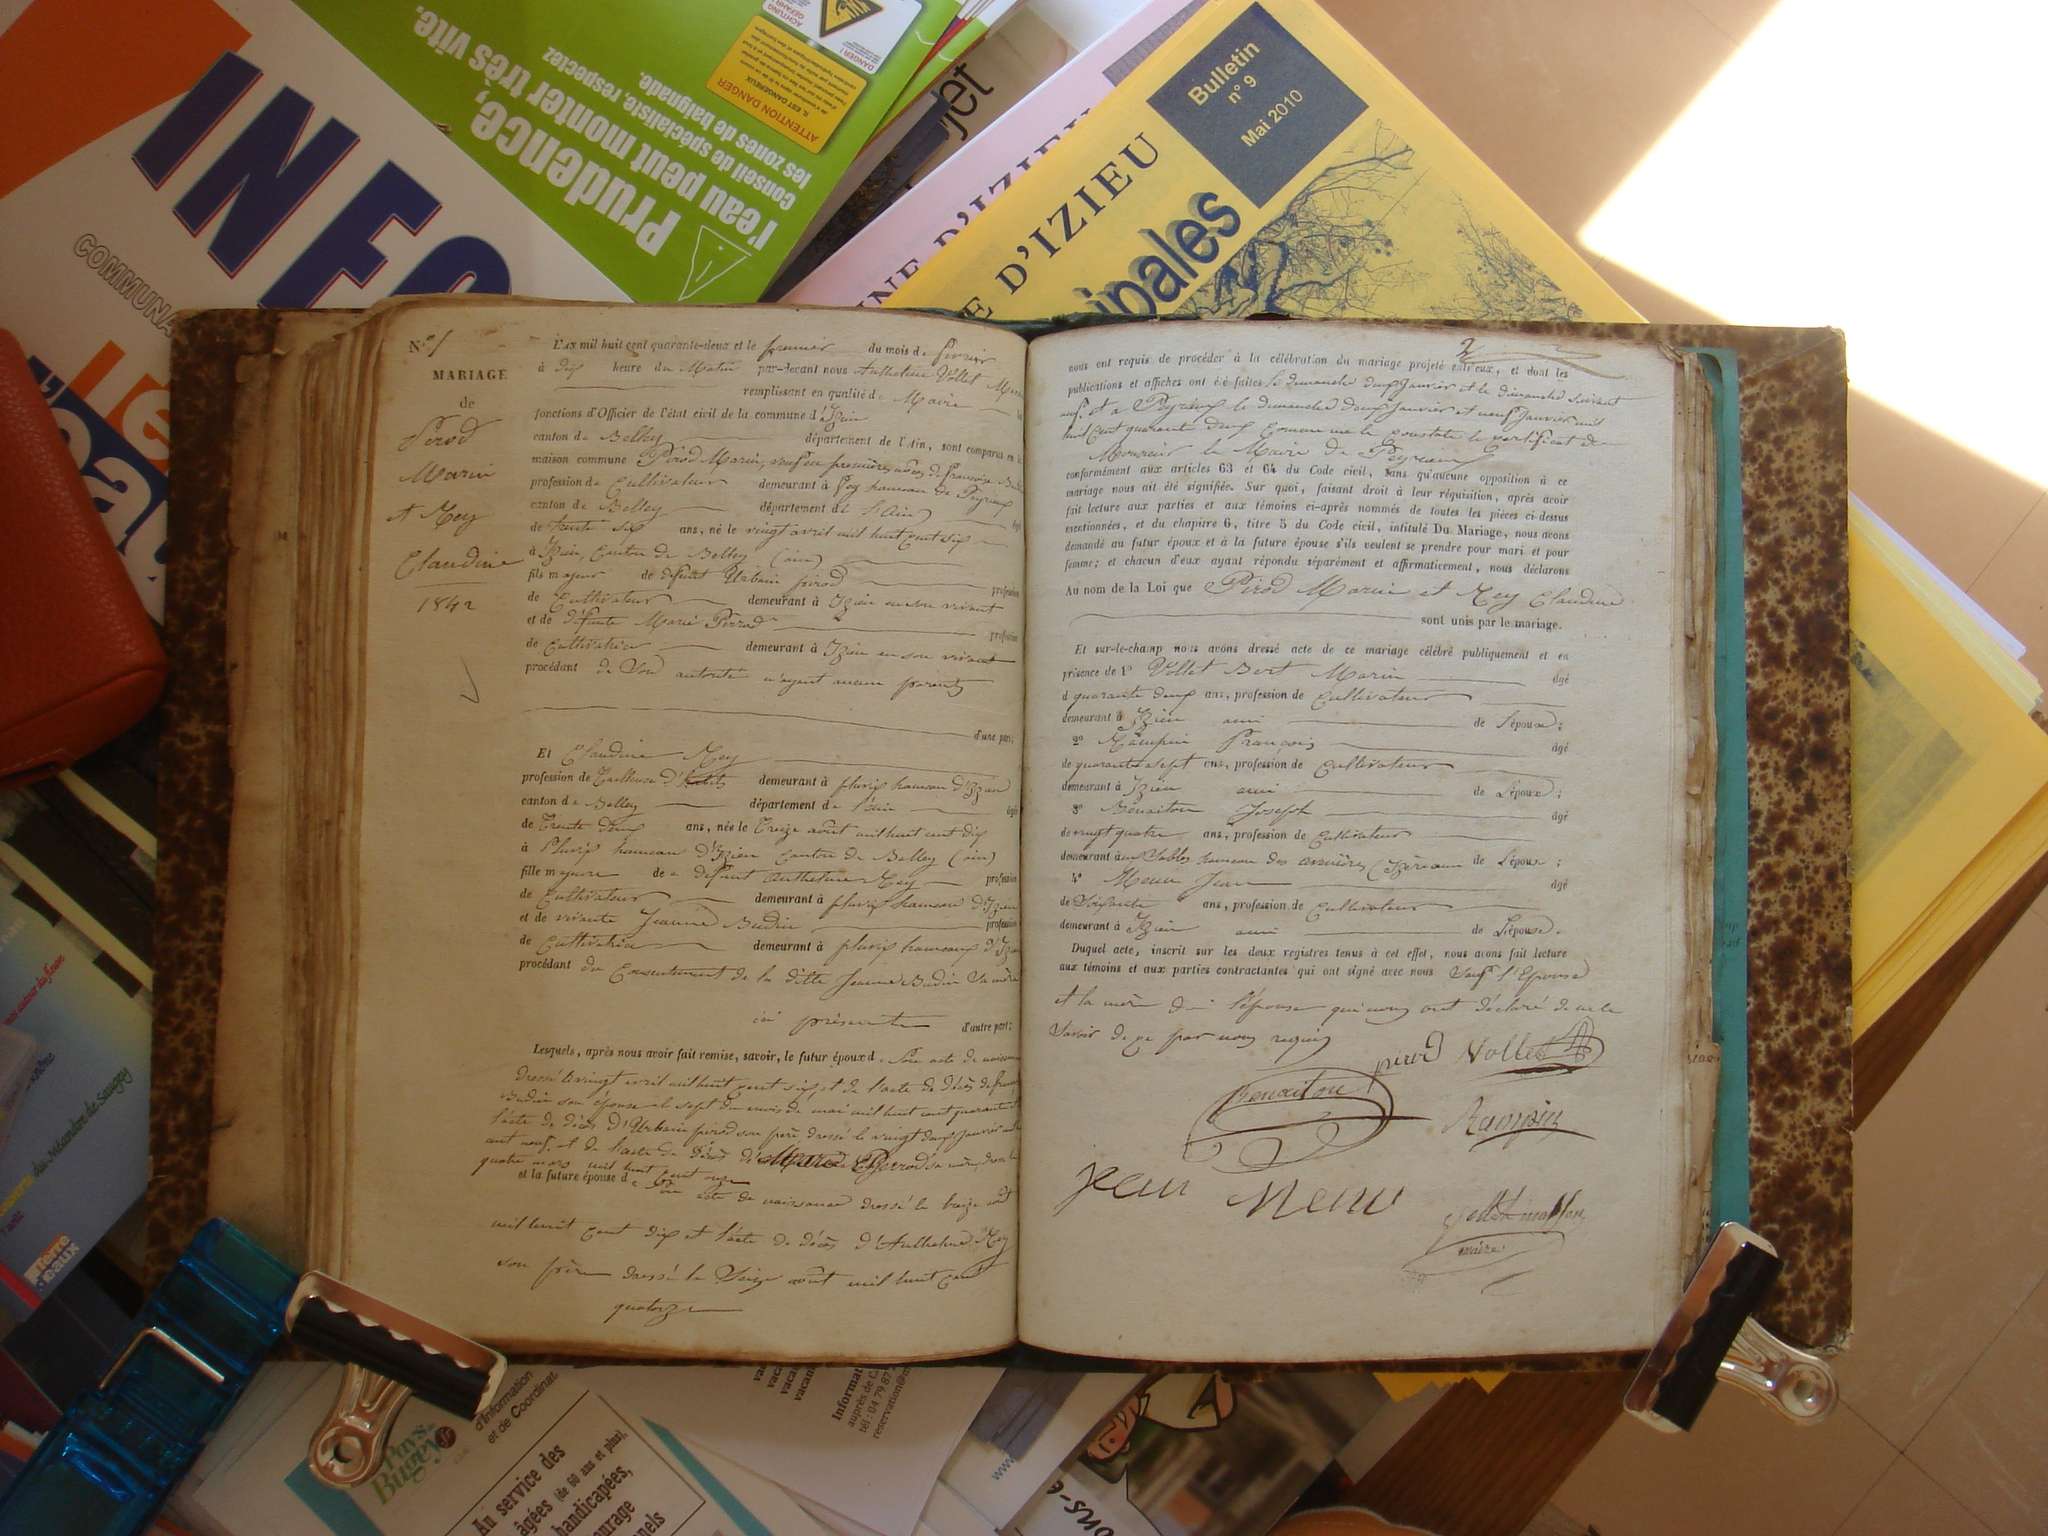 INFO
COMMUNA
Prudence,
l'eau peut monter très vite.
conseil de spécialiste, respectez
les zones de baignade.
ATTENTION DANGER
Bulletin
n° 9
Mai 2010
D'IZIEU
E D'IZIEU
ipales
N.º 1
MARIAGE
de
Pirod
Marin
et Mey
Claudine
1842
L'AN mil huit cent quarante-deux et le premier du mois de février
à dix heure du Matin par-devant nous Anthelme Vollet
remplissant en qualité de Maire
fonctions d'Officier de l'état civil de la commune d'Izieu
canton de Belley département de l'Ain, sont comparus en
maison commune Pirod Marin, veuf en premières noces de Françoise
profession de Cultivateur demeurant à hameau de Peyrieux
canton de Belley département de l'Ain âgé
de trente six ans, né le vingt avril mil huit cent six
à Izieu, Canton de Belley (ain)
fils majeur de défunt Urbain pirod profession
de Cultivateur demeurant à Izieu en son vivant
et de défunte Marie Perrod profession
de Cultivatrice demeurant à Izieu en son vivant
procédant de Son autorité n'ayant aucun parents
d'une part;
Et Claudine Mey
profession de Tailleuse d' demeurant à hameau d'Izieu
canton de Belley département de l'ain âgée
de Trente deux ans, née le Treize août mil huit cent dix
à hameau d'Izieu Canton de Belley (ain)
fille majeure de défunt anthelme Mey profession
de Cultivateur demeurant à hameau d'Izieu
et de vivante Jeanne Budin profession
de Cultivatrice demeurant à hameaux d'Izieu
procédant du Consentement de la ditte Jeanne Budin Sa mère
ici présente d'autre part;
Lesquels, après nous avoir fait remise, savoir, le futur époux de Son acte de naissance
dressé le vingt avril mil huit cent six, et de l'acte de décès de
Budin son épouse le sept du mois de mai mil huit cent quarante
l'acte de décès d'Urbain pirod son père dressé le vingt deux janvier
cent neuf et de l'acte de décès de Marie Perrod sa mère, dressé le
quatre mars mil huit cent onze
et la future épouse de Son acte de naissance dressé le treize août
mil huit cent dix et l'acte de décès d'Anthelme Mey
son père dressé le Seize août mil huit cent
quatorze
2
nous ont requis de procéder à la célébration du mariage projeté entr'eux, et dont les
publications et affiches ont été faites le dimanche deux Janvier et le dimanche suivant
neuf et a Peyrieux le dimanche deux Janvier et neuf Janvier mil
huit cent quarante deux Comme me le constate le certificat de
Monsieur le Maire de Peyrieux
conformément aux articles 63 et 64 du Code civil, sans qu'aucune opposition à ce
mariage nous ait été signifiée. Sur quoi, faisant droit à leur réquisition, après avoir
fait lecture aux parties et aux témoins ci-après nommés de toutes les pièces ci-dessus
mentionnées, et du chapitre 6, titre 5 du Code civil, intitulé Du Mariage, nous avons
demandé au futur époux et à la future épouse s'ils veulent se prendre pour mari et pour
femme; et chacun d'eux ayant répondu séparément et affirmativement, nous déclarons
Au nom de la Loi que Pirod Marin et Mey Claudine
sont unis par le mariage.
Et sur-le-champ nous avons dressé acte de ce mariage célébré publiquement et en
présence de 1º Vollet Bert Marin âgé
d quarante deux ans, profession de Cultivateur
demeurant à Izieu ami de l'époux;
2º Rampin François âgé
de quarante sept ans, profession de Cultivateur
demeurant à Izieu ami de L'époux;
3º Benaiton Joseph âgé
de vingt quatre ans, profession de Cultivateur
demeurant aux Sables hameau des de L'épouse;
4º Menu Jean âgé
de Soixante ans, profession de Cultivateur
demeurant à Izieu ami de L'épouse.
Duquel acte, inscrit sur les deux registres tenus à cet effet, nous avons fait lecture
aux témoins et aux parties contractantes qui ont signé avec nous Sauf l'Epouse
et la mère de l'épouse qui nous ont déclaré de ne le
savoir de ce par nous requis
pirod Vollet
Benaiton
Rampin
Jean Menu
maire
Pays du
Bugey
d'Information
et de Coordinat
Au service des
âgées (de 60 ans et plus),
handicapées,
ourage
nnels
Informat
auprès de C
tél : 04 79 87
reservation@
www.
terre
d'eaux